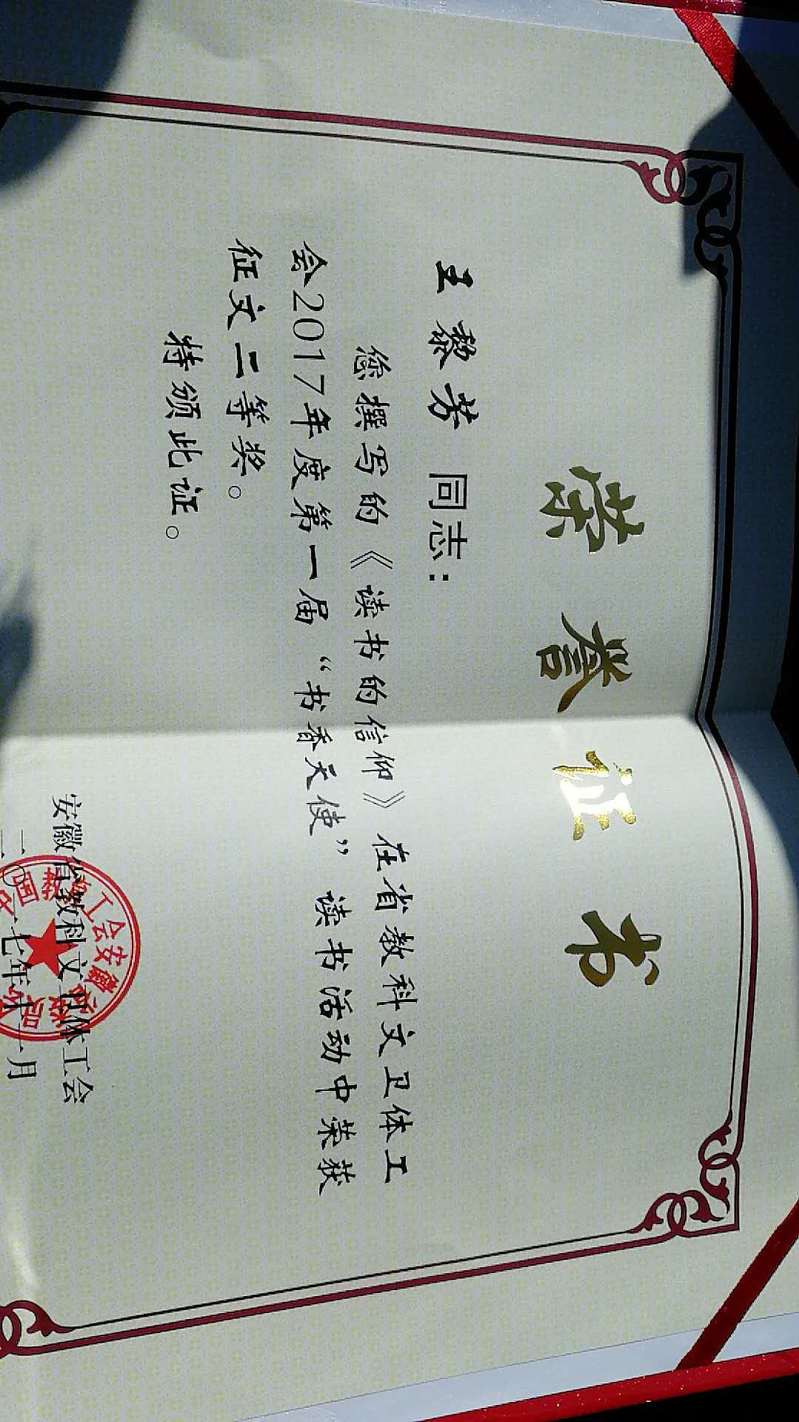 荣誉证书
王黎芳 同志：
您撰写的《读书的信仰》在省教科文卫体工
会2017年度第一届“书香天使”读书活动中荣获
征文二等奖。
特颁此证。
安徽省教科文卫体工会